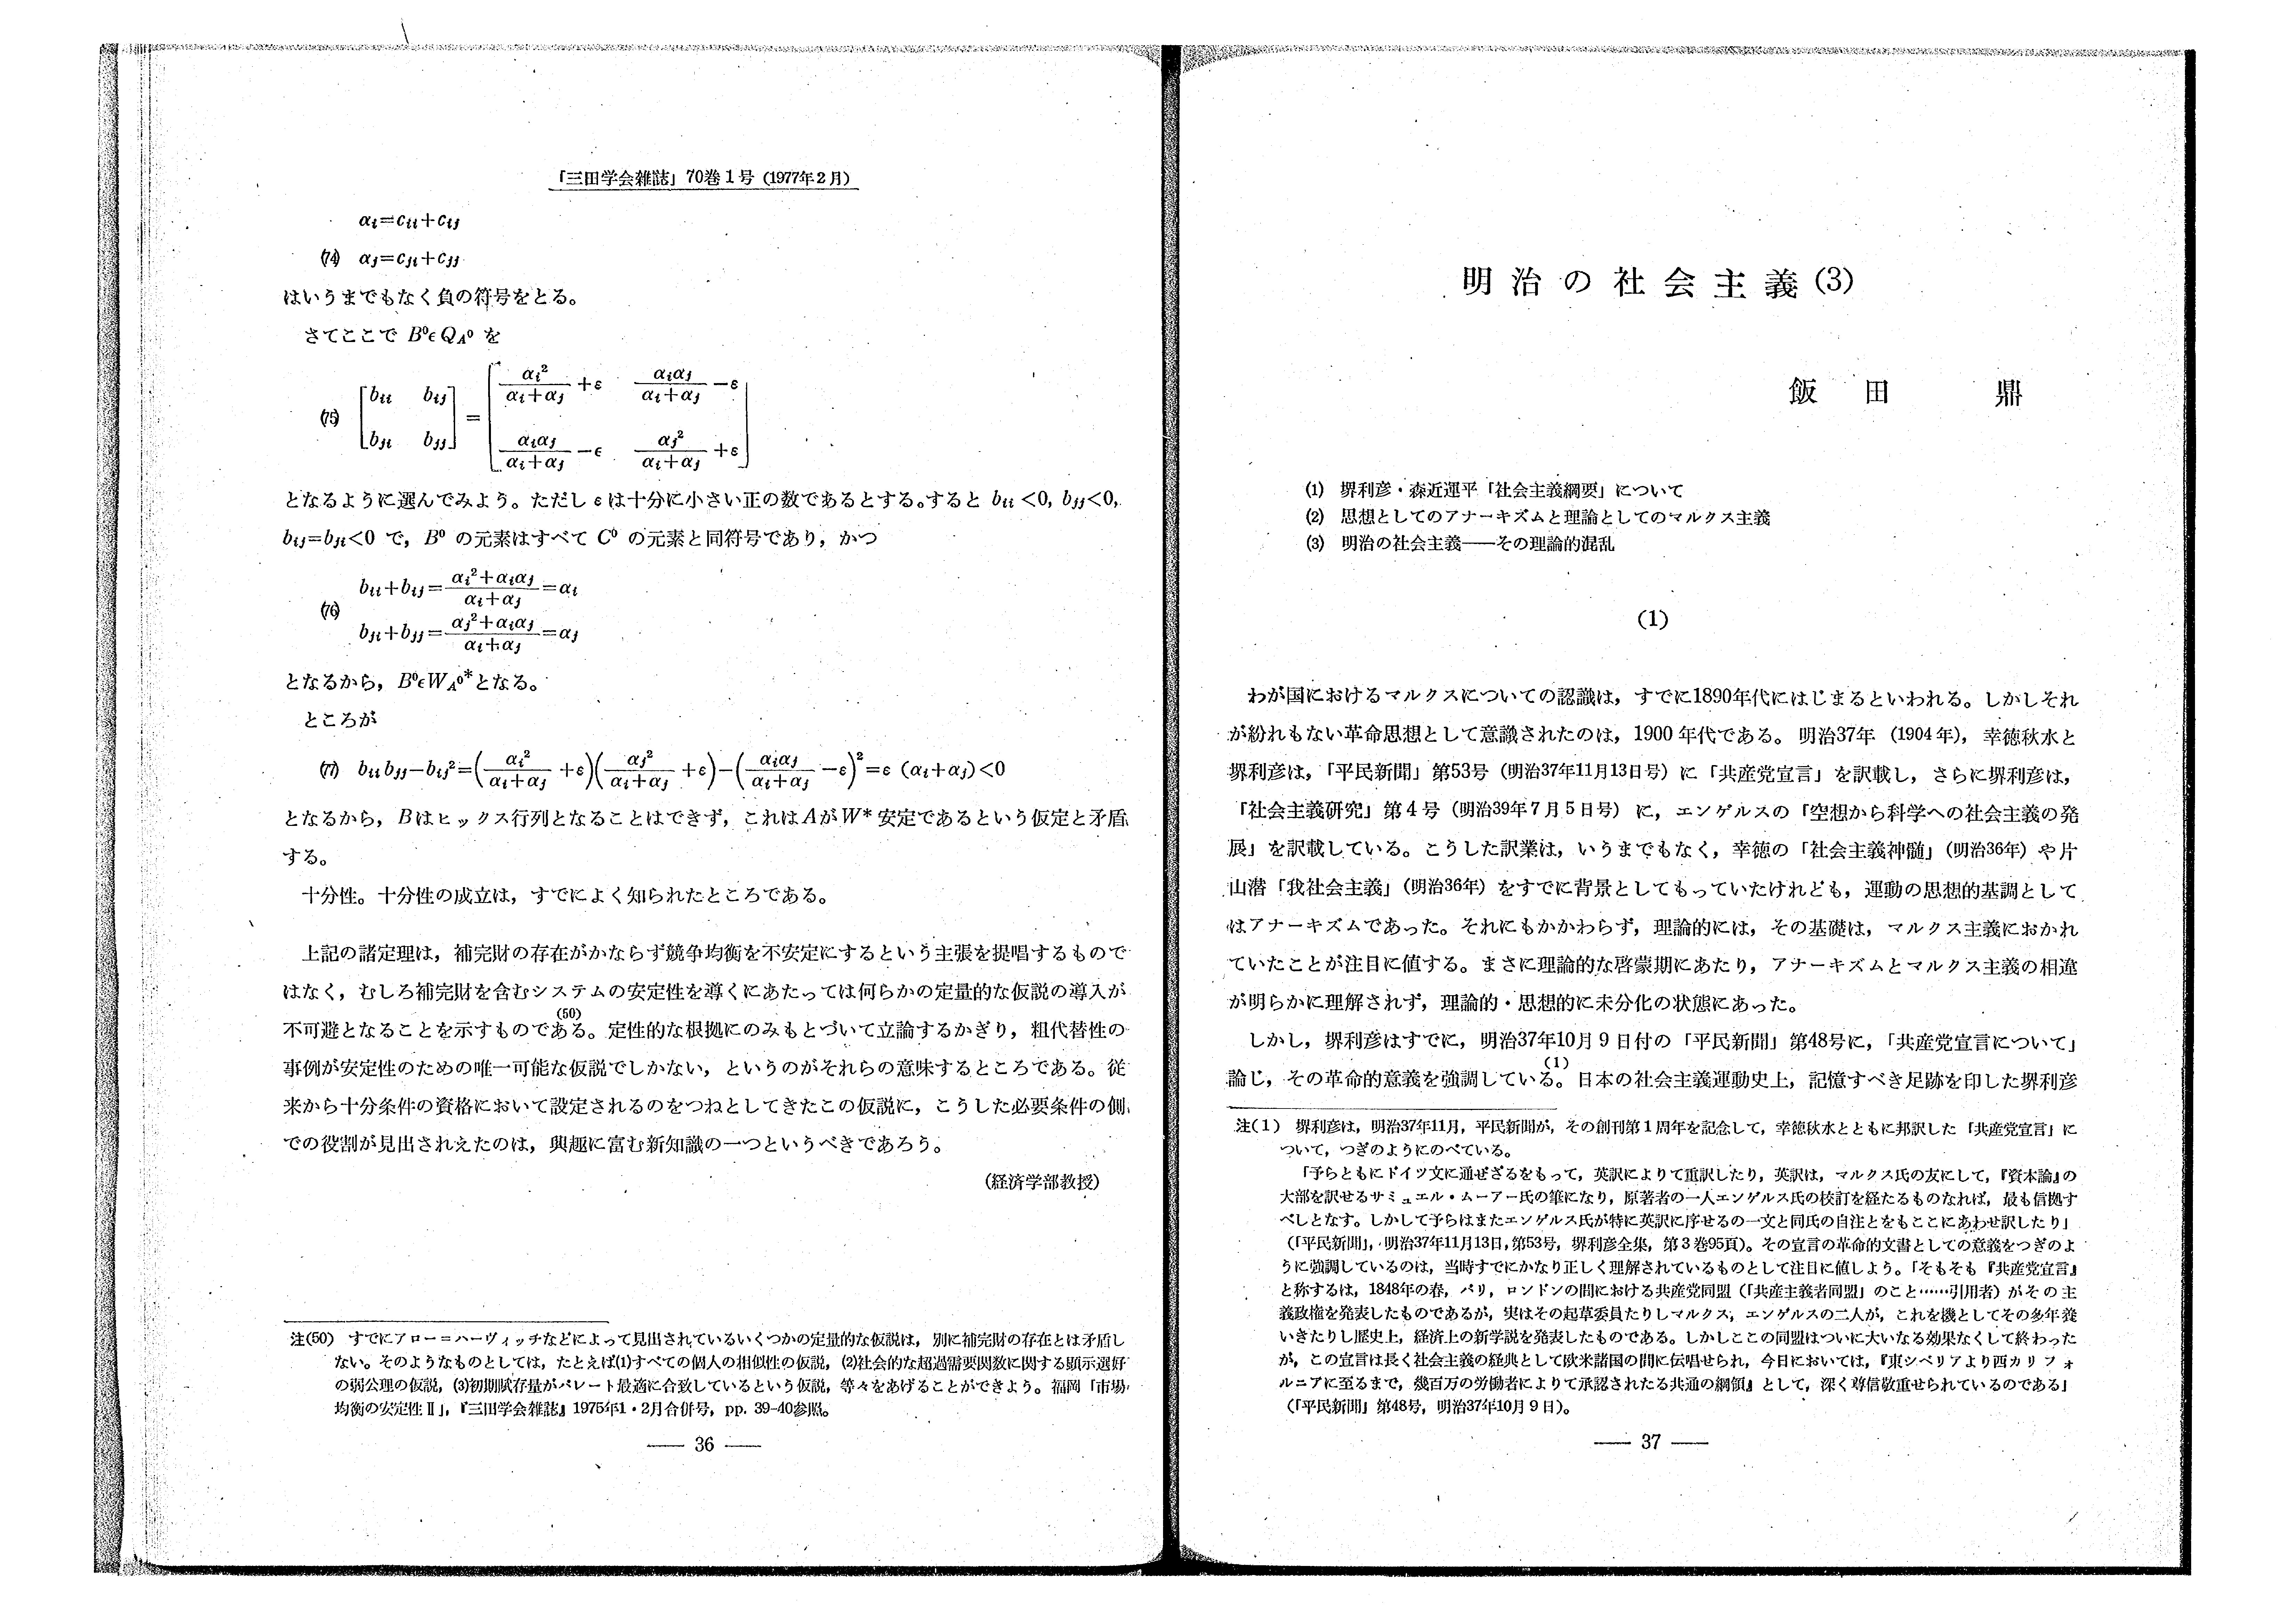 「三田学会雑誌」70巻1号 (1977年2月)
αi=cii+cij
(74) αj=cji+cjj
はいうまでもなく負の符号をとる。
さてここで B⁰εQA⁰ を
(75) [bii bij; bji bjj] = [αi²/(αi+αj)+ε αiαj/(αi+αj)−ε; αiαj/(αi+αj)−ε αj²/(αi+αj)+ε]
となるように選んでみよう。ただし ε は十分に小さい正の数であるとする。すると bii<0, bjj<0,
bij=bji<0 で, B⁰ の元素はすべて C⁰ の元素と同符号であり, かつ
(76) bii+bij=(αi²+αiαj)/(αi+αj)=αi
bji+bjj=(αj²+αiαj)/(αi+αj)=αj
となるから, B⁰εWA⁰*となる。
ところが
(77) bii bjj−bij²=(αi²/(αi+αj)+ε)(αj²/(αi+αj)+ε)−(αiαj/(αi+αj)−ε)²=ε (αi+αj)<0
となるから, Bはヒックス行列となることはできず, これはAがW*安定であるという仮定と矛盾
する。
十分性。十分性の成立は, すでによく知られたところである。
上記の諸定理は, 補完財の存在がかならず競争均衡を不安定にするという主張を提唱するもので
はなく, むしろ補完財を含むシステムの安定性を導くにあたっては何らかの定量的な仮説の導入が
不可避となることを示すものである。(50) 定性的な根拠にのみもとづいて立論するかぎり, 粗代替性の
事例が安定性のための唯一可能な仮説でしかない, というのがそれらの意味するところである。従
来から十分条件の資格において設定されるのをつねとしてきたこの仮説に, こうした必要条件の側
での役割が見出されえたのは, 興趣に富む新知識の一つというべきであろう。
(経済学部教授)
注(50) すでにアロー＝ハーヴィッチなどによって見出されているいくつかの定量的な仮説は, 別に補完財の存在とは矛盾し
ない。そのようなものとしては, たとえば(1)すべての個人の相似性の仮説, (2)社会的な超過需要関数に関する顕示選好
の弱公理の仮説, (3)初期賦存量がパレート最適に合致しているという仮説, 等々をあげることができよう。福岡「市場
均衡の安定性Ⅱ」,『三田学会雑誌』1975年1・2月合併号, pp. 39-40参照。
—— 36 ——
明治の社会主義(3)
飯田 鼎
(1) 堺利彦・森近運平「社会主義綱要」について
(2) 思想としてのアナーキズムと理論としてのマルクス主義
(3) 明治の社会主義——その理論的混乱
(1)
わが国におけるマルクスについての認識は, すでに1890年代にはじまるといわれる。しかしそれ
が紛れもない革命思想として意識されたのは, 1900年代である。明治37年 (1904年), 幸徳秋水と
堺利彦は,「平民新聞」第53号 (明治37年11月13日号) に「共産党宣言」を訳載し, さらに堺利彦は,
「社会主義研究」第4号 (明治39年7月5日号) に, エンゲルスの「空想から科学への社会主義の発
展」を訳載している。こうした訳業は, いうまでもなく, 幸徳の「社会主義神髄」(明治36年) や片
山潜「我社会主義」(明治36年) をすでに背景としてもっていたけれども, 運動の思想的基調として
はアナーキズムであった。それにもかかわらず, 理論的には, その基礎は, マルクス主義におかれ
ていたことが注目に値する。まさに理論的な啓蒙期にあたり, アナーキズムとマルクス主義の相違
が明らかに理解されず, 理論的・思想的に未分化の状態にあった。
しかし, 堺利彦はすでに, 明治37年10月9日付の「平民新聞」第48号に,「共産党宣言について」
論じ, その革命的意義を強調している。(1) 日本の社会主義運動史上, 記憶すべき足跡を印した堺利彦
注(1) 堺利彦は, 明治37年11月, 平民新聞が, その創刊第1周年を記念して, 幸徳秋水とともに邦訳した「共産党宣言」に
ついて, つぎのようにのべている。
「予らともにドイツ文に通ぜざるをもって, 英訳によりて重訳したり, 英訳は, マルクス氏の友にして,『資本論』の
大部を訳せるサミュエル・ムーアー氏の筆になり, 原著者の一人エンゲルス氏の校訂を経たるものなれば, 最も信拠す
べしとなす。しかして予らはまたエンゲルス氏が特に英訳に序せるの一文と同氏の自注とをもここにあわせ訳したり」
(「平民新聞」, 明治37年11月13日, 第53号, 堺利彦全集, 第3巻95頁)。その宣言の革命的文書としての意義をつぎのよ
うに強調しているのは, 当時すでにかなり正しく理解されているものとして注目に値しよう。「そもそも『共産党宣言』
と称するは, 1848年の春, パリ, ロンドンの間における共産党同盟 (「共産主義者同盟」のこと……引用者) がその主
義政権を発表したものであるが, 実はその起草委員たりしマルクス, エンゲルスの二人が, これを機としてその多年養
いきたりし歴史上, 経済上の新学説を発表したものである。しかしここの同盟はついに大いなる効果なくして終わった
が, この宣言は長く社会主義の経典として欧米諸国の間に伝唱せられ, 今日においては,『東シベリアより西カリフォ
ルニアに至るまで, 幾百万の労働者によりて承認されたる共通の綱領』として, 深く尊信敬重せられているのである」
(「平民新聞」第48号, 明治37年10月9日)。
—— 37 ——